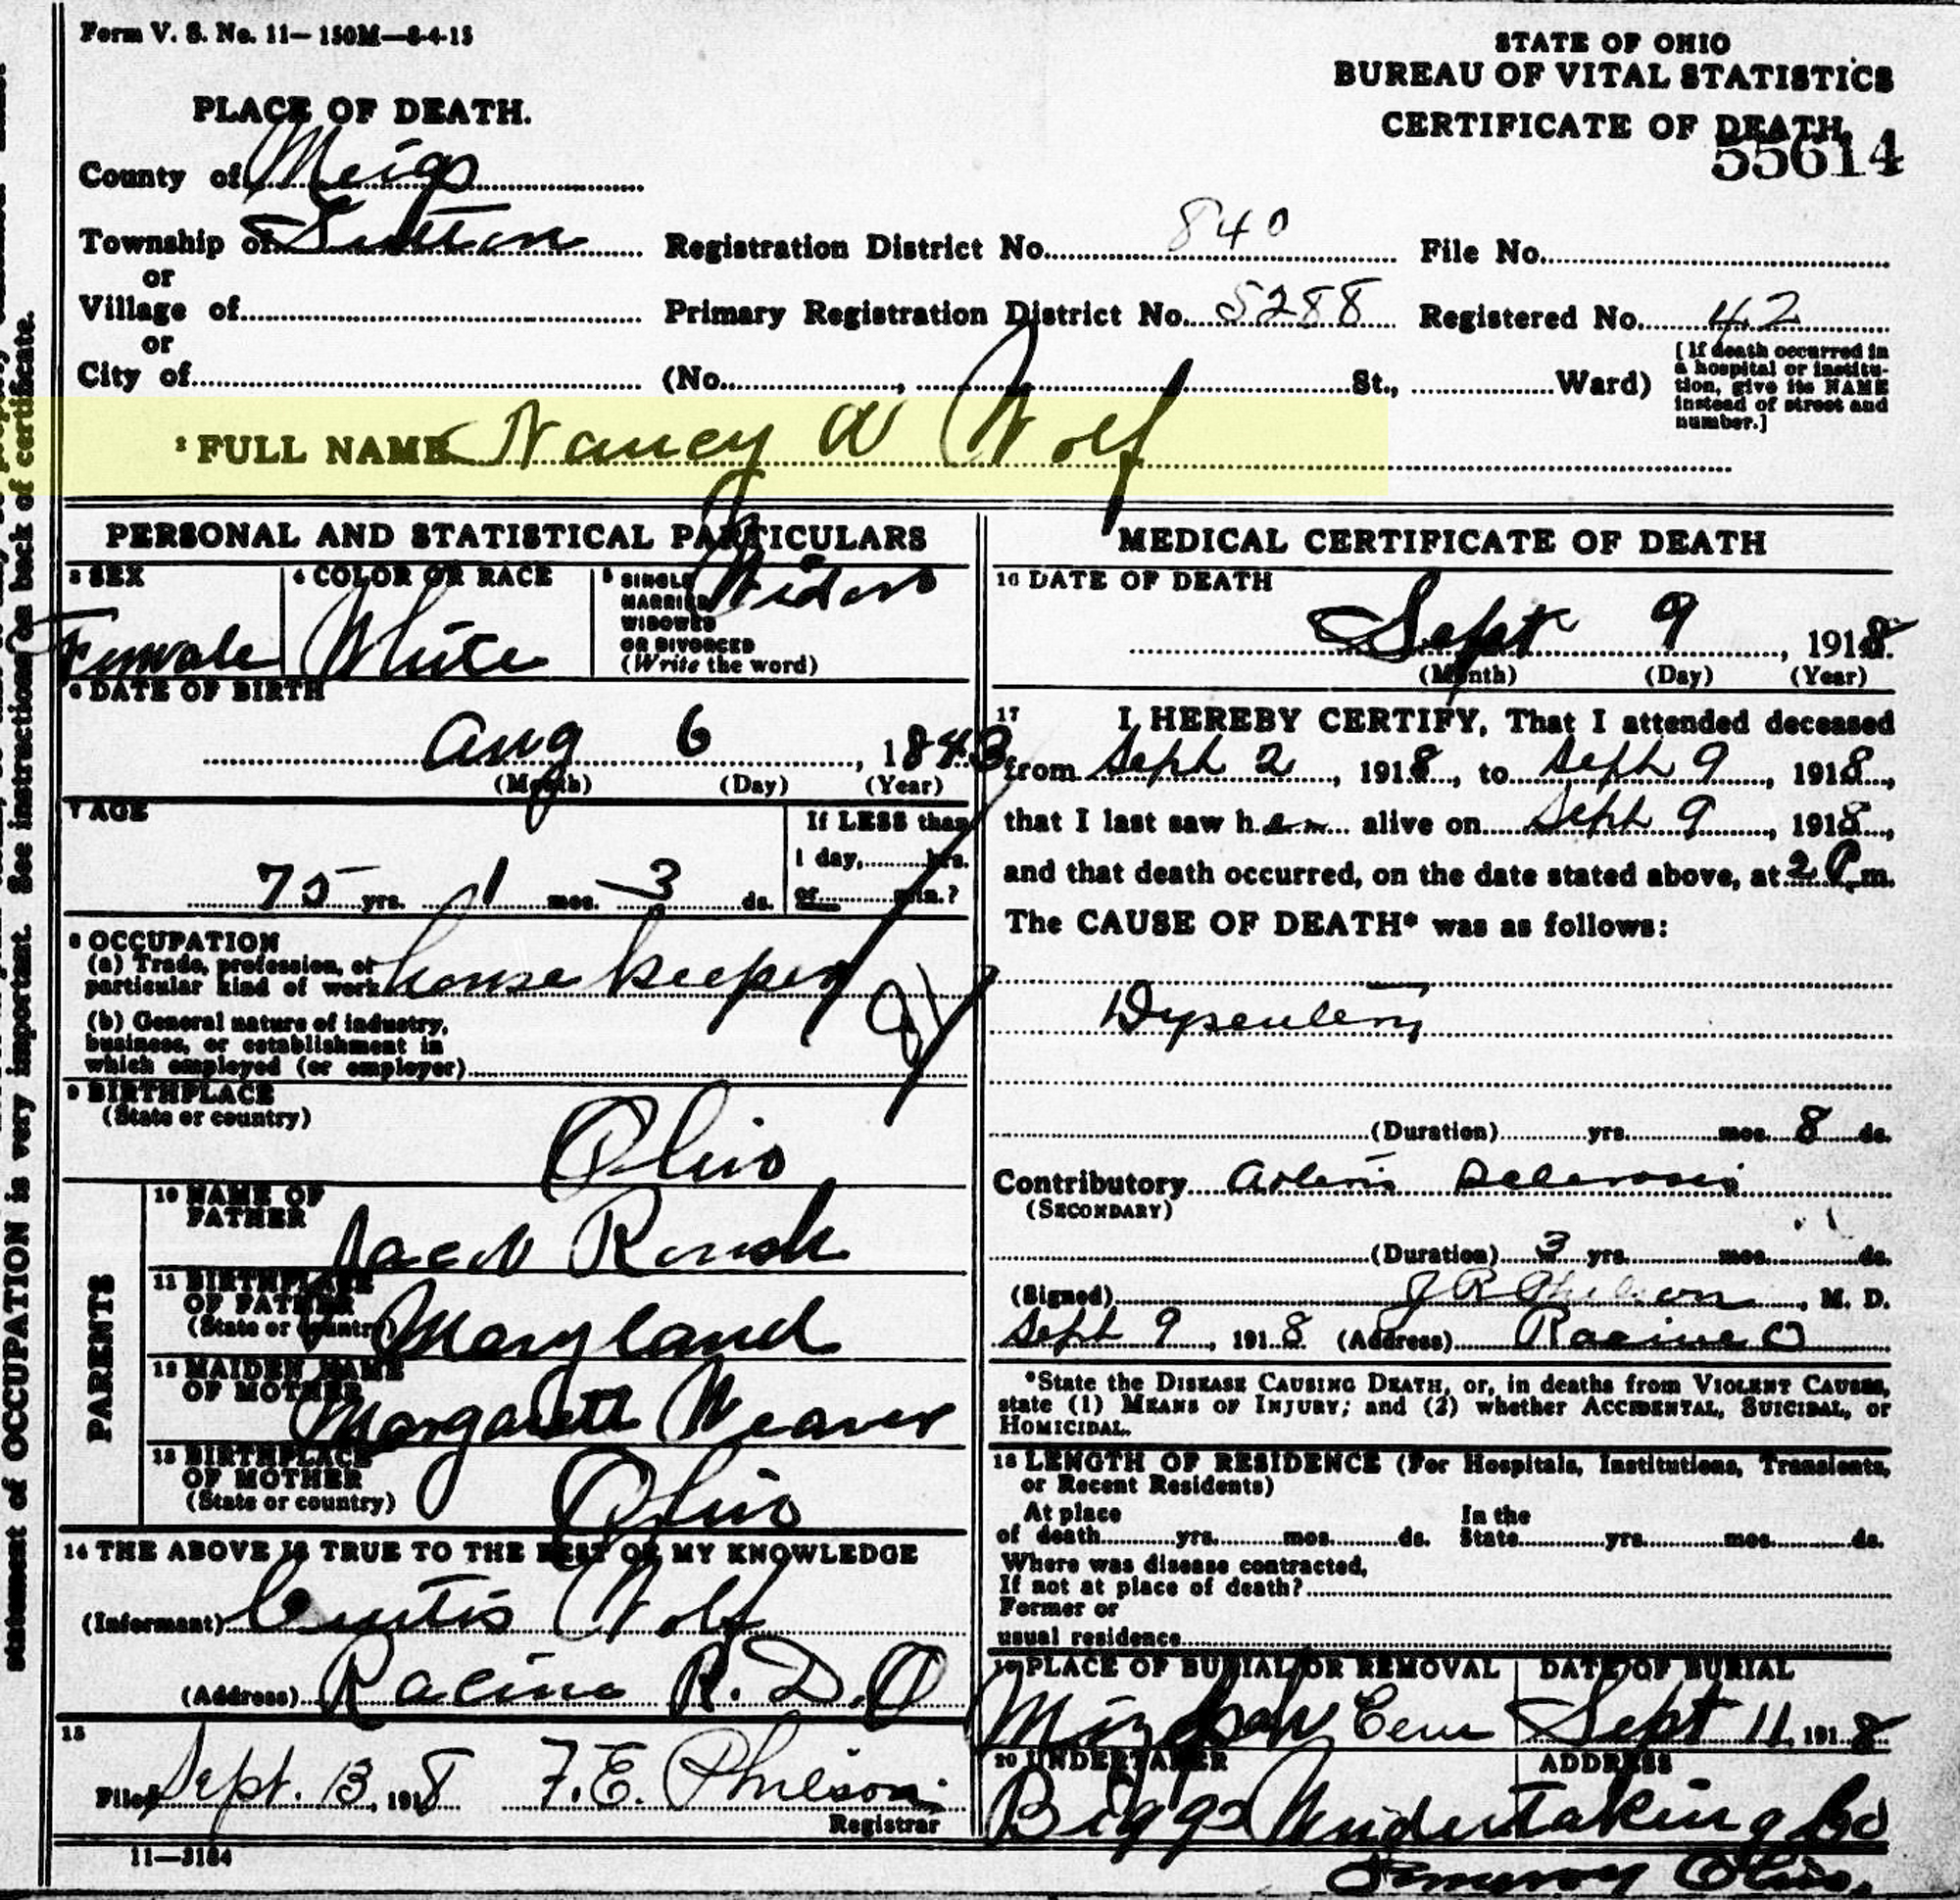 Form V. S. No. 11— 150M—8-4-15
STATE OF OHIO
BUREAU OF VITAL STATISTICS
CERTIFICATE OF DEATH
55614
PLACE OF DEATH.
County of Meigs
Township of Sutton Registration District No. 840 File No.
or
Village of Primary Registration District No. 5288 Registered No. 42
or
City of (No. , St., Ward)
[If death occurred in
a hospital or institu-
tion, give its NAME
instead of street and
number.]
2 FULL NAME Nancy A Wolf
PERSONAL AND STATISTICAL PARTICULARS
3 SEX
Female
4 COLOR OR RACE
White
5 SINGLE
MARRIED
WIDOWED
OR DIVORCED
(Write the word)
Widow
6 DATE OF BIRTH
Aug 6, 1843
(Month) (Day) (Year)
7 AGE
75 yrs. 1 mos. 3 ds.
If LESS than
1 day, hrs.
or min.?
8 OCCUPATION
(a) Trade, profession, or
particular kind of work house keeper
(b) General nature of industry,
business, or establishment in
which employed (or employer)
9 BIRTHPLACE
(State or country)
Ohio
PARENTS
10 NAME OF
FATHER
Jacob Roush
11 BIRTHPLACE
OF FATHER
(State or country)
Maryland
12 MAIDEN NAME
OF MOTHER
Margarett Weaver
13 BIRTHPLACE
OF MOTHER
(State or country)
Ohio
14 THE ABOVE IS TRUE TO THE BEST OF MY KNOWLEDGE
(Informant) Curtis Wolf
(Address) Racine R. D. O
15
Filed Sept. 13, 1918 F. E. Philson
Registrar
11—3184
MEDICAL CERTIFICATE OF DEATH
16 DATE OF DEATH
Sept 9, 1918
(Month) (Day) (Year)
17 I HEREBY CERTIFY, That I attended deceased
from Sept 2, 1918, to Sept 9, 1918,
that I last saw h alive on Sept 9, 1918,
and that death occurred, on the date stated above, at 2 P m.
The CAUSE OF DEATH* was as follows:
Dysentery
(Duration) yrs. mos. 8 ds.
Contributory Arterio Sclerosis
(SECONDARY)
(Duration) 3 yrs. mos. ds.
(Signed) J R Philson, M. D.
Sept 9, 1918 (Address) Racine O
*State the DISEASE CAUSING DEATH, or, in deaths from VIOLENT CAUSES,
state (1) MEANS OF INJURY; and (2) whether ACCIDENTAL, SUICIDAL, or
HOMICIDAL.
18 LENGTH OF RESIDENCE (For Hospitals, Institutions, Transients,
or Recent Residents)
At place In the
of death yrs. mos. ds. State yrs. mos. ds.
Where was disease contracted,
If not at place of death?
Former or
usual residence
19 PLACE OF BURIAL OR REMOVAL
Mizpah Cem
DATE OF BURIAL
Sept 11, 1918
20 UNDERTAKER ADDRESS
Biggs Undertaking Co
Pomeroy Ohio.
statement of OCCUPATION is very important. See instructions on back of certificate.